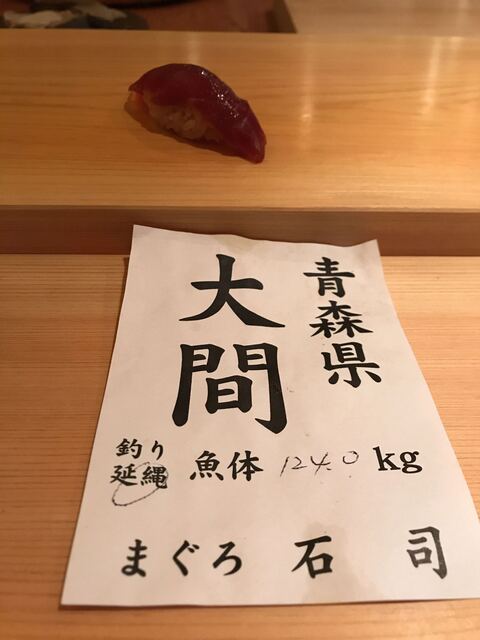 青森県
大間
釣り
延縄
魚体 124.0 kg
まぐろ 石司